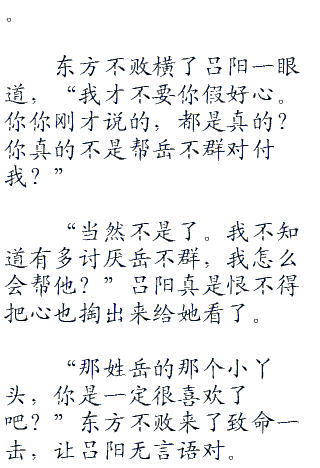 。
东方不败横了吕阳一眼
道，“我才不要你假好心。
你你刚才说的，都是真的？
你真的不是帮岳不群对付
我？”
“当然不是了。我不知
道有多讨厌岳不群，我怎么
会帮他？”吕阳真是恨不得
把心也掏出来给她看了。
“那姓岳的那个小丫
头，你是一定很喜欢了
吧？”东方不败来了致命一
击，让吕阳无言语对。